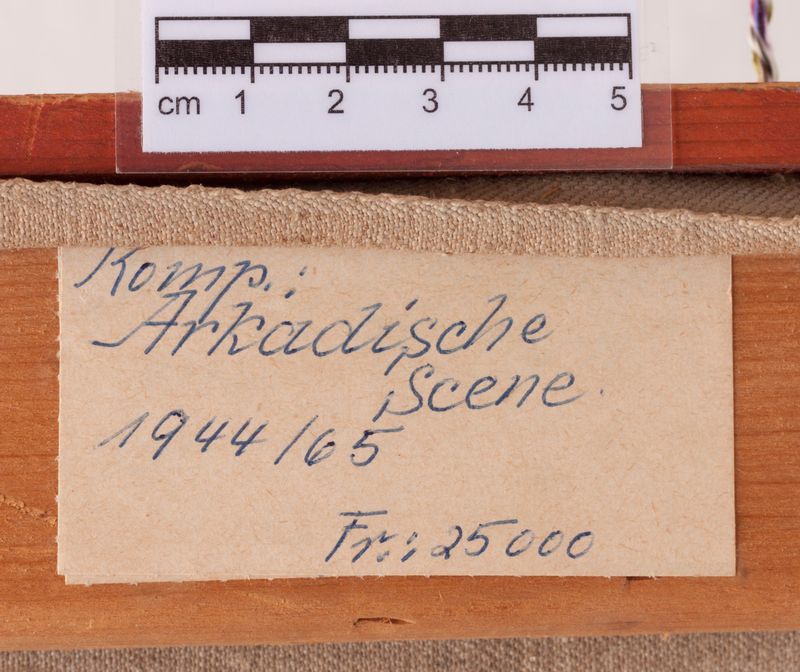 cm 1 2 3 4 5
Komp.:
Arkadische
Scene.
1944/65
Fr.: 25000